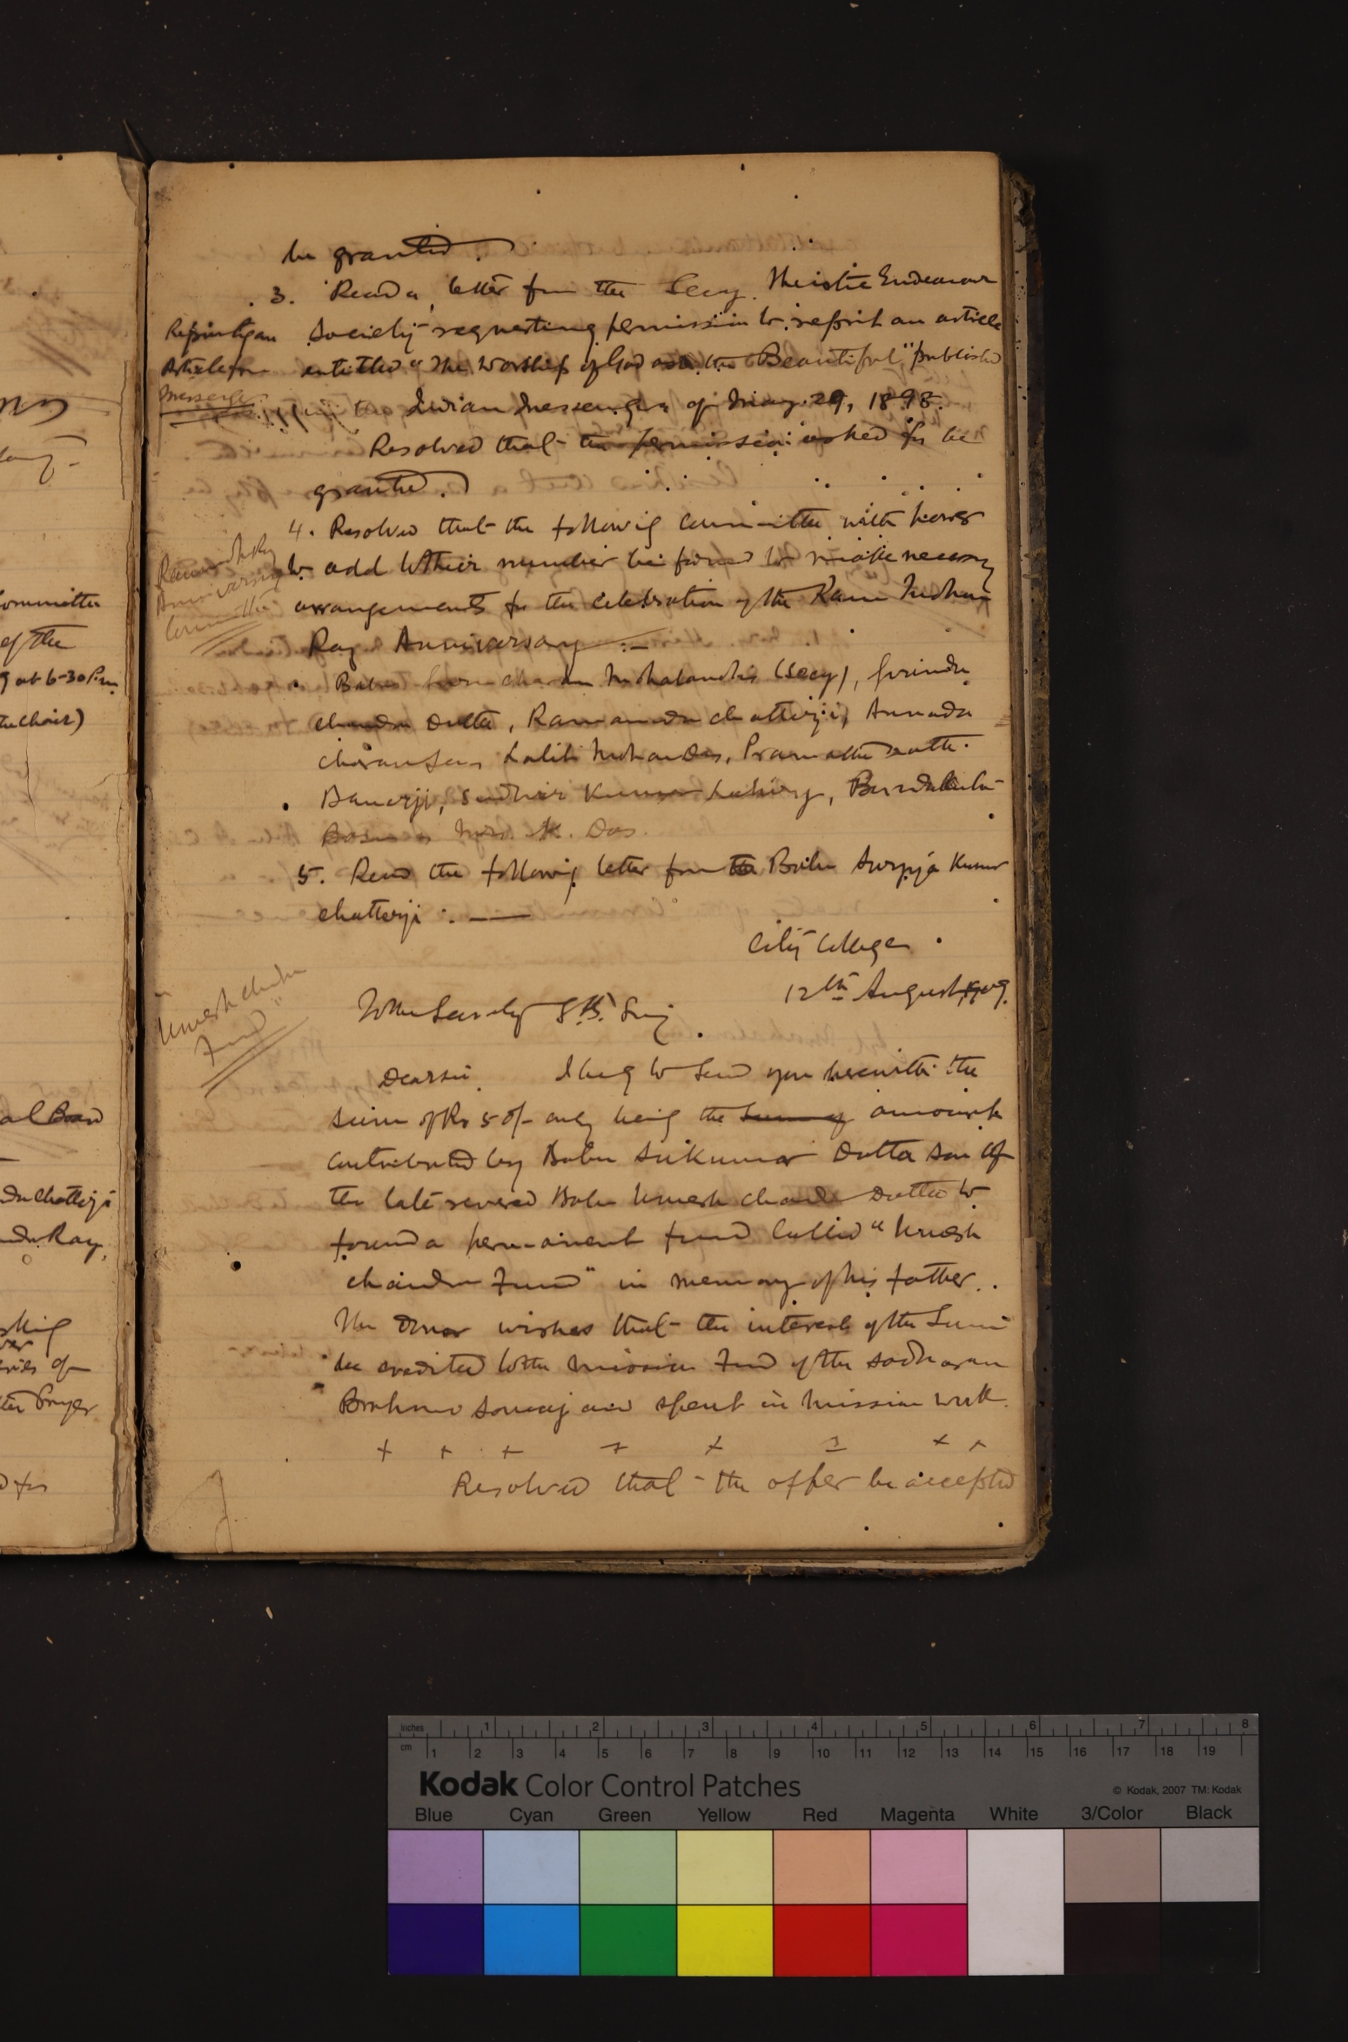 be granted.
3. Read a letter from the Secy. Theistic Endeavour
Society requesting permission to reprint an article
entitled "The Worship of God as the Beautiful," published
in Indian Messenger of May 29, 1898.
Resolved that the permission asked for be
granted.
4. Resolved that the following Committee with power
to add to their number be formed to make necessary
arrangements for the celebration of the Ram Mohan
Ray Anniversary :—
Babu Guru charan Mohalanobis (Secy),
chandra Dutta, Ramananda chatterji, Annada
charan Sen, Lalit Mohan Das, Pramatha nath
Banerji, Sudhir Kumar Lahiry,
Bose Mrs. K. Das.
5. Read the following letter from Babu Kumar
chatterji : —
City College
12th August, 1909.
To the Secretary S. B. Samaj
Dear Sir, I beg to send you herewith the
sum of Rs 50/- only being the sum of amount
contributed by Babu Sukumar Dutta son of
the late revered Babu Umesh chandra Dutta to
found a permanent fund called "Umesh
chandra Fund" in memory of his father.
The donor wishes that the interest of the Sum
be credited to the mission Fund of the Sadharan
Brahmo Somaj and spent in mission work.
+ + + + + + +
Resolved that the offer be accepted
Reprinting an
Article from
Messenger
Ram Mohan Ray
Anniversary
Committee
Umesh chandra
Fund"
Committee
of the
9 at 6-30 P.m.
the Chair)
al Board
Chatterji
Ray,
of
Prayer
for
inches 1 2 3 4 5 6 7 8
cm 1 2 3 4 5 6 7 8 9 10 11 12 13 14 15 16 17 18 19
Kodak Color Control Patches © Kodak, 2007 TM: Kodak
Blue Cyan Green Yellow Red Magenta White 3/Color Black